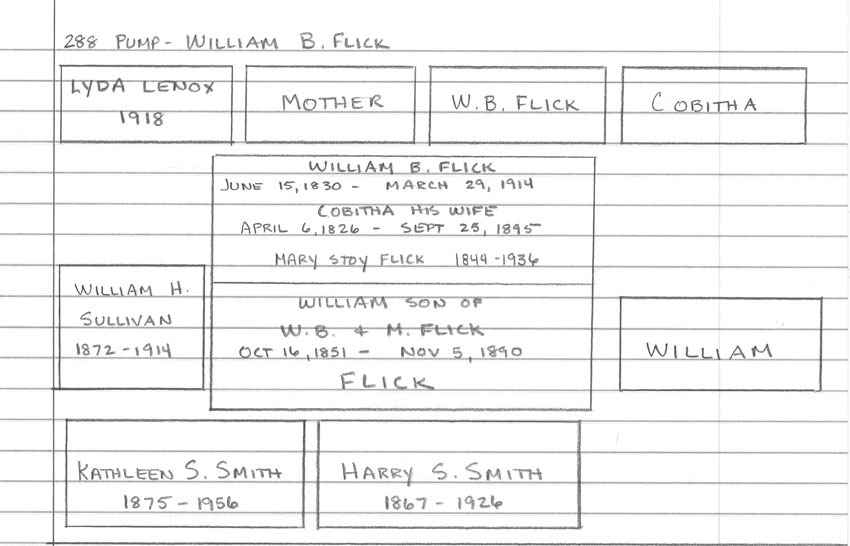 288 PUMP - WILLIAM B. FLICK
LYDA LENOX
1918
MOTHER
W.B. FLICK
COBITHA
WILLIAM B. FLICK
JUNE 15, 1830 - MARCH 29, 1914
COBITHA HIS WIFE
APRIL 6, 1826 - SEPT 25, 1895
MARY STOY FLICK 1844-1936
WILLIAM H.
SULLIVAN
1872-1914
WILLIAM SON OF
W.B. & M. FLICK
OCT 16, 1851 - NOV 5, 1890
FLICK
WILLIAM
KATHLEEN S. SMITH
1875-1956
HARRY S. SMITH
1867-1926